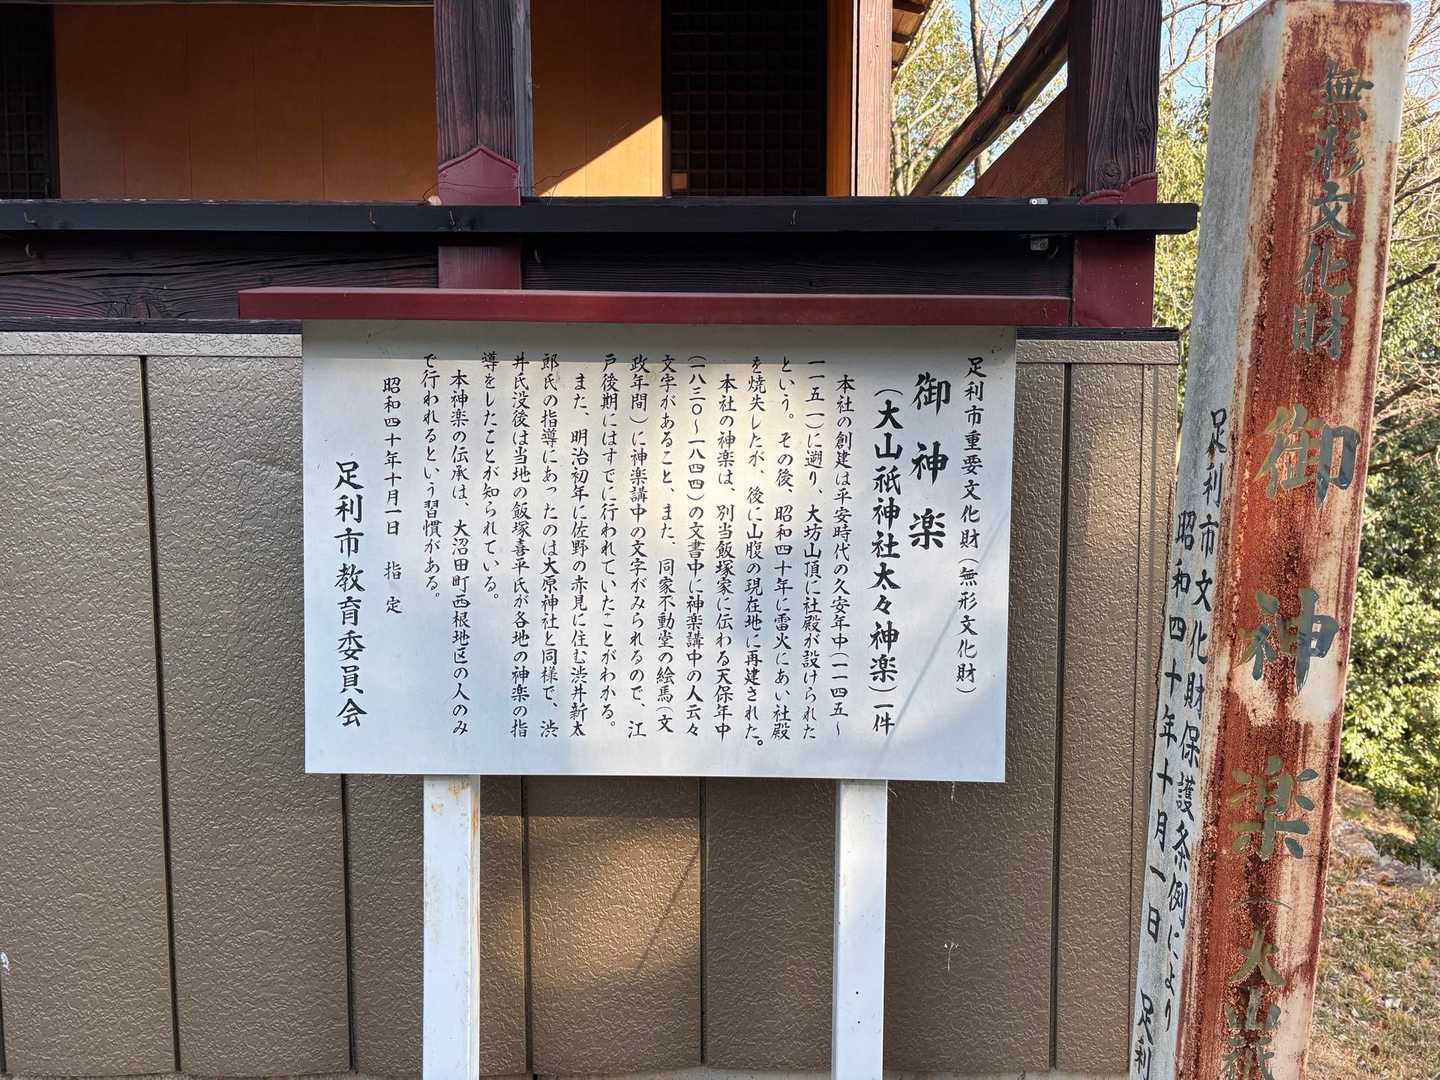 足利市重要文化財（無形文化財）
御神楽
（大山祇神社太々神楽）一件
本社の創建は平安時代の久安年中（一一四五～
一一五一）に遡り、大坊山頂に社殿が設けられた
という。その後、昭和四十年に雷火にあい社殿
を焼失したが、後に山腹の現在地に再建された。
本社の神楽は、別当飯塚家に伝わる天保年中
（一八三〇～一八四四）の文書中に神楽講中の人云々
文字があること、また、同家不動堂の絵馬（文
政年間）に神楽講中の文字がみられるので、江
戸後期にはすでに行われていたことがわかる。
また、明治初年に佐野の赤見に住む渋井新太
郎氏の指導にあったのは大原神社と同様で、渋
井氏没後は当地の飯塚喜平氏が各地の神楽の指
導をしたことが知られている。
本神楽の伝承は、大沼田町西根地区の人のみ
で行われるという習慣がある。
昭和四十年十月一日　指定
足利市教育委員会
無形文化財 御神楽（大山祇
足利市文化財保護条例により
昭和四十年十月一日 足利